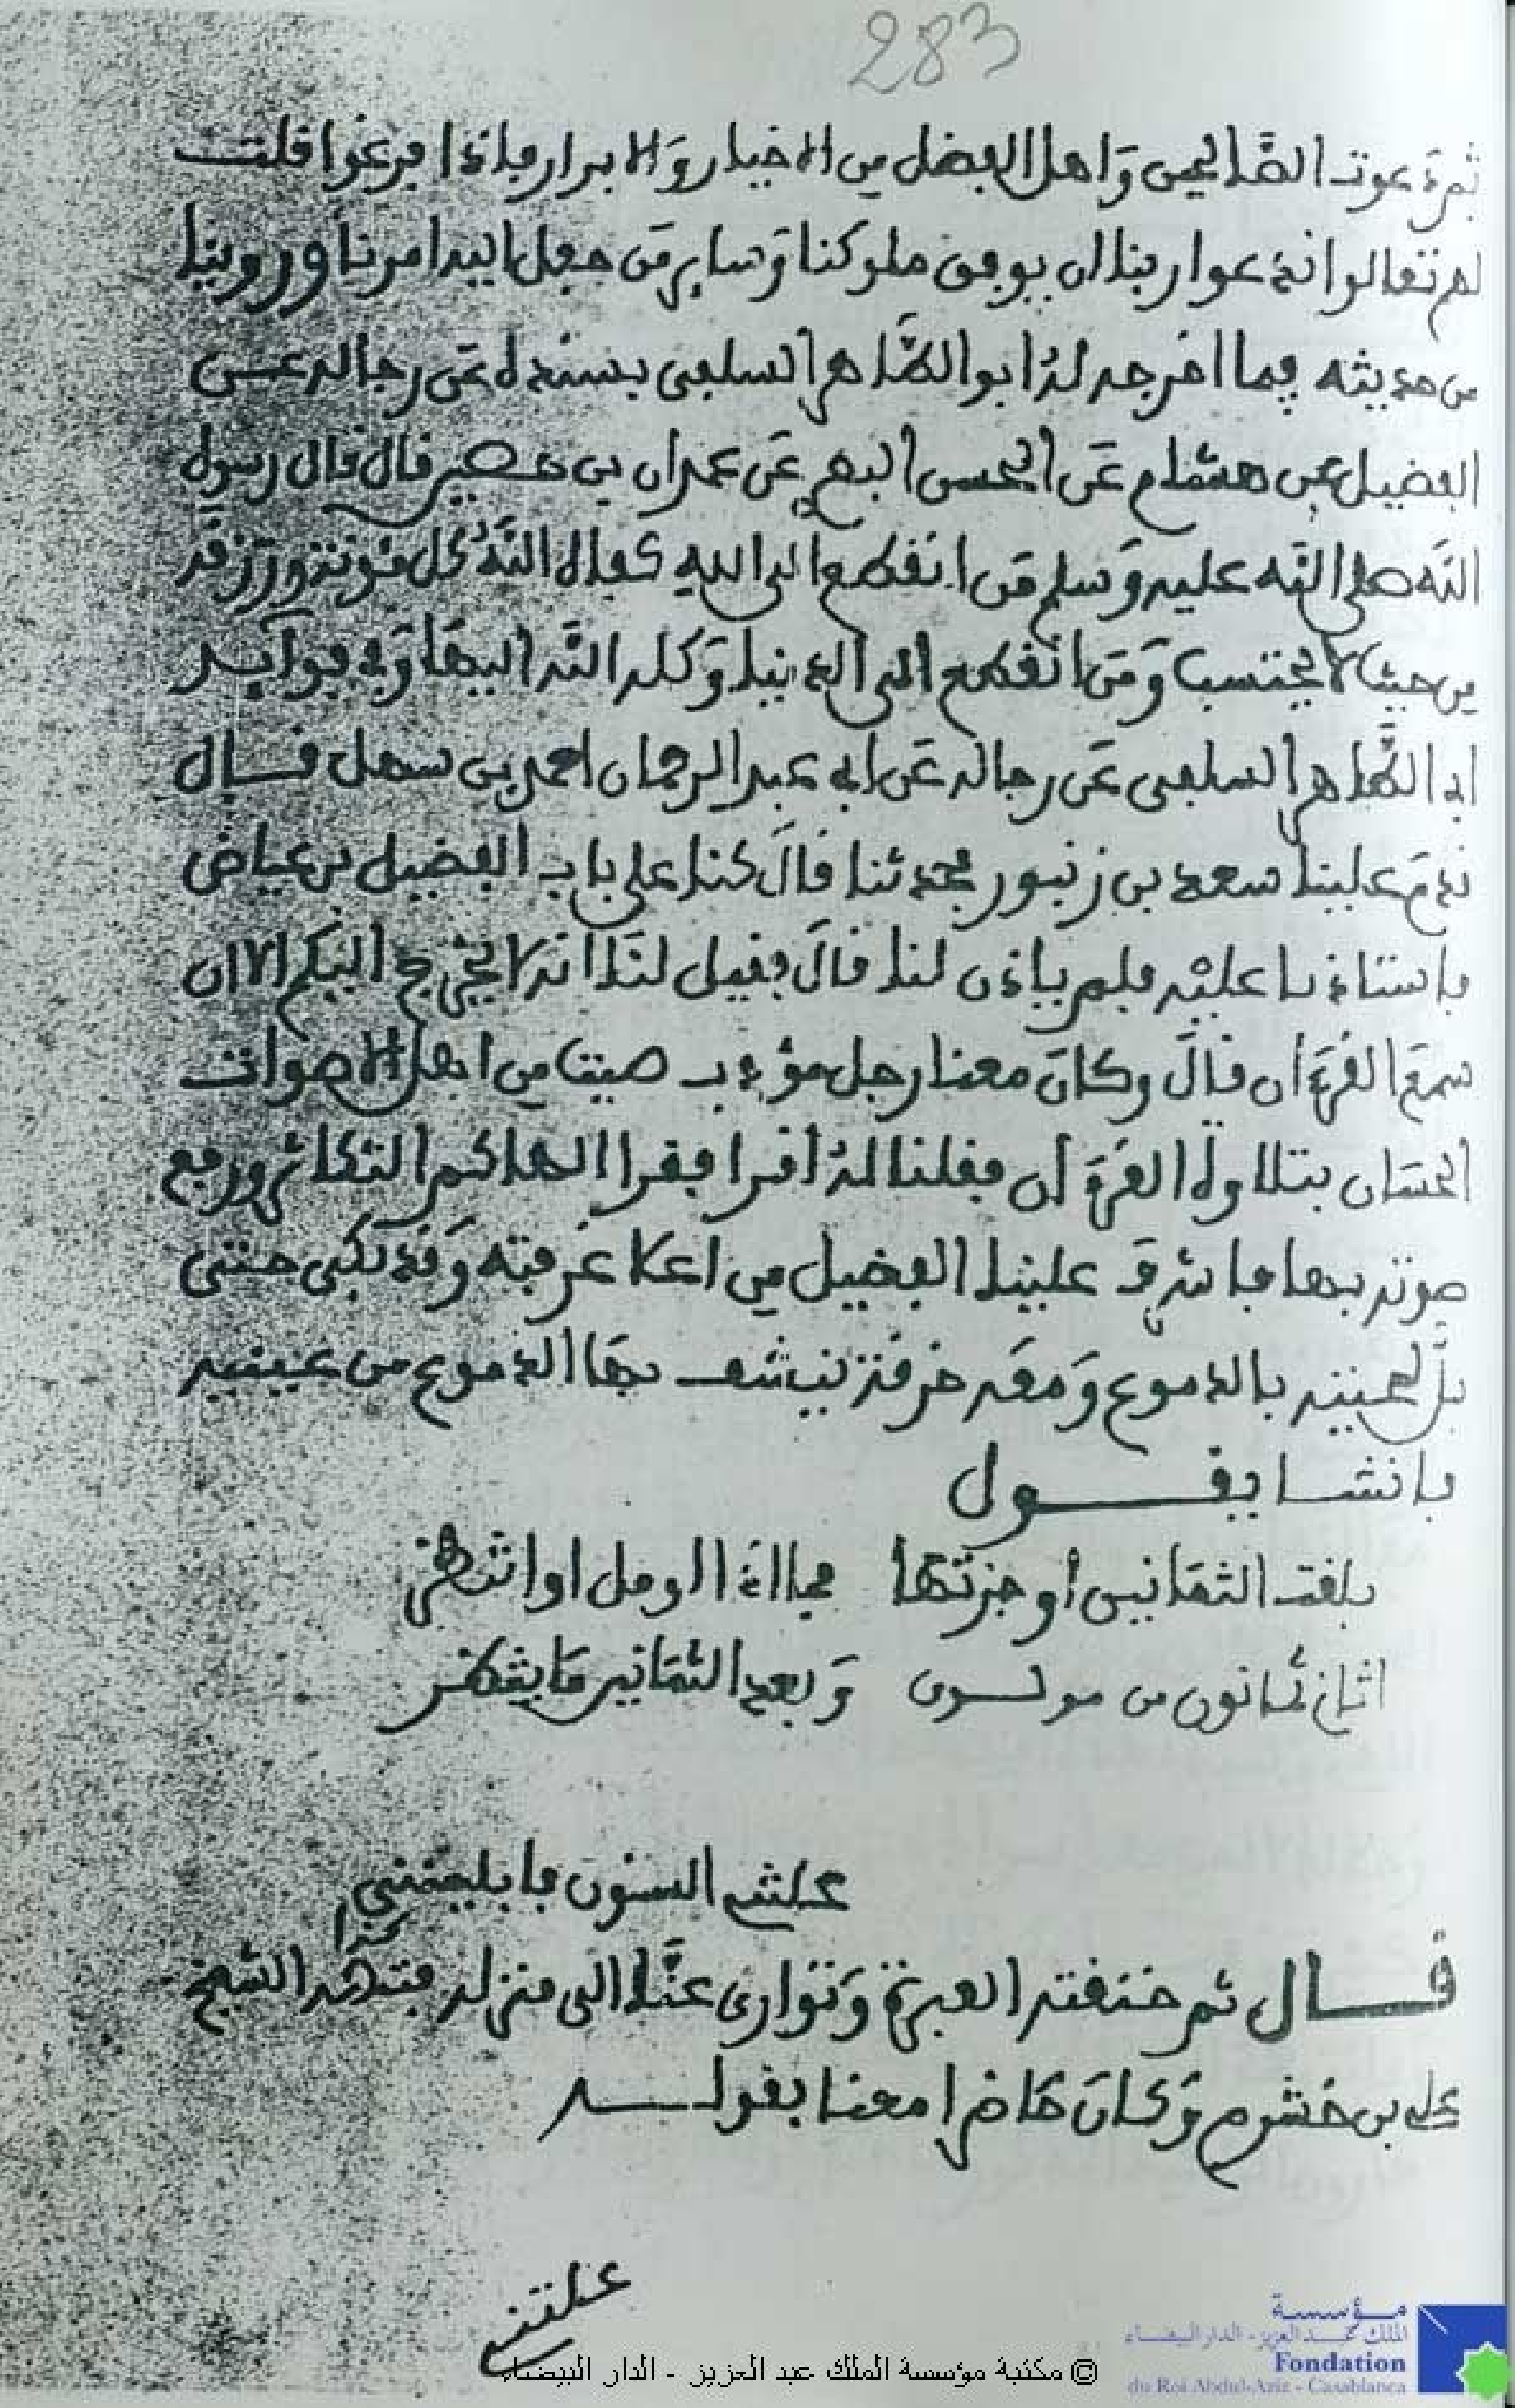 283
ثم دعوت الصالحين واهل الفضل من الاخيار والابرار فاذا فرغوا قلت
لهم تعالوا ندعوا ربنا ان يوفق ملوكنا وساير من جعل اليه امرنا وروينا
من حديثه فيما اخرجه له ابو الطاهر السلفي بسنده عن رجاله عن
الفضيل عن هشام عن الحسن عن عمران بن حصين قال قال رسول
الله صلى الله عليه وسلم من انقطع الى الله كفاه الله كل مؤنة ورزقه
من حيث لا يحتسب ومن انقطع الى الدنيا وكله الله اليها وفي فوايد
ابي الطاهر السلفي عن رجاله عن ابي عبد الرحمان احمد بن سهل قال
قدم علينا سعد بن زنبور فحدثنا قال كنا على باب الفضيل بن عياض
فاستاذنا عليه فلم ياذن لنا قال فقيل لنا انه لا يخرج اليكم الا ان
سمع القرءان قال وكان معنا رجل مؤدب صيتا من اهل الاصوات
الحسان بتلاوة القرءان فقلنا له اقرا فقرا الهاكم التكاثر ورفع
صوته بها فاشرف علينا الفضيل من اعلا غرفته وقد بكى حتى
بل لحيته بالدموع ومعه خرقة ينشف بها الدموع من عينيه
فانشا يقول
بلغت الثمانين او جزتها فماذا اؤمل او انتظر
اتان ثمانون من مولدي وبعد الثمانين ما ينتظر
علتني السنون فابلينني
كذا
قال ثم خنقته العبرة وتوارى عنا الى منزله فتمه الشيخ
علي بن خشرم وكان حاضرا معنا بقوله
علتني
مؤسسة
الملك عبد العزيز - الدار البيضاء
Fondation
du Roi Abdul-Aziz - Casablanca
© مكتبة مؤسسة الملك عبد العزيز - الدار البيضاء